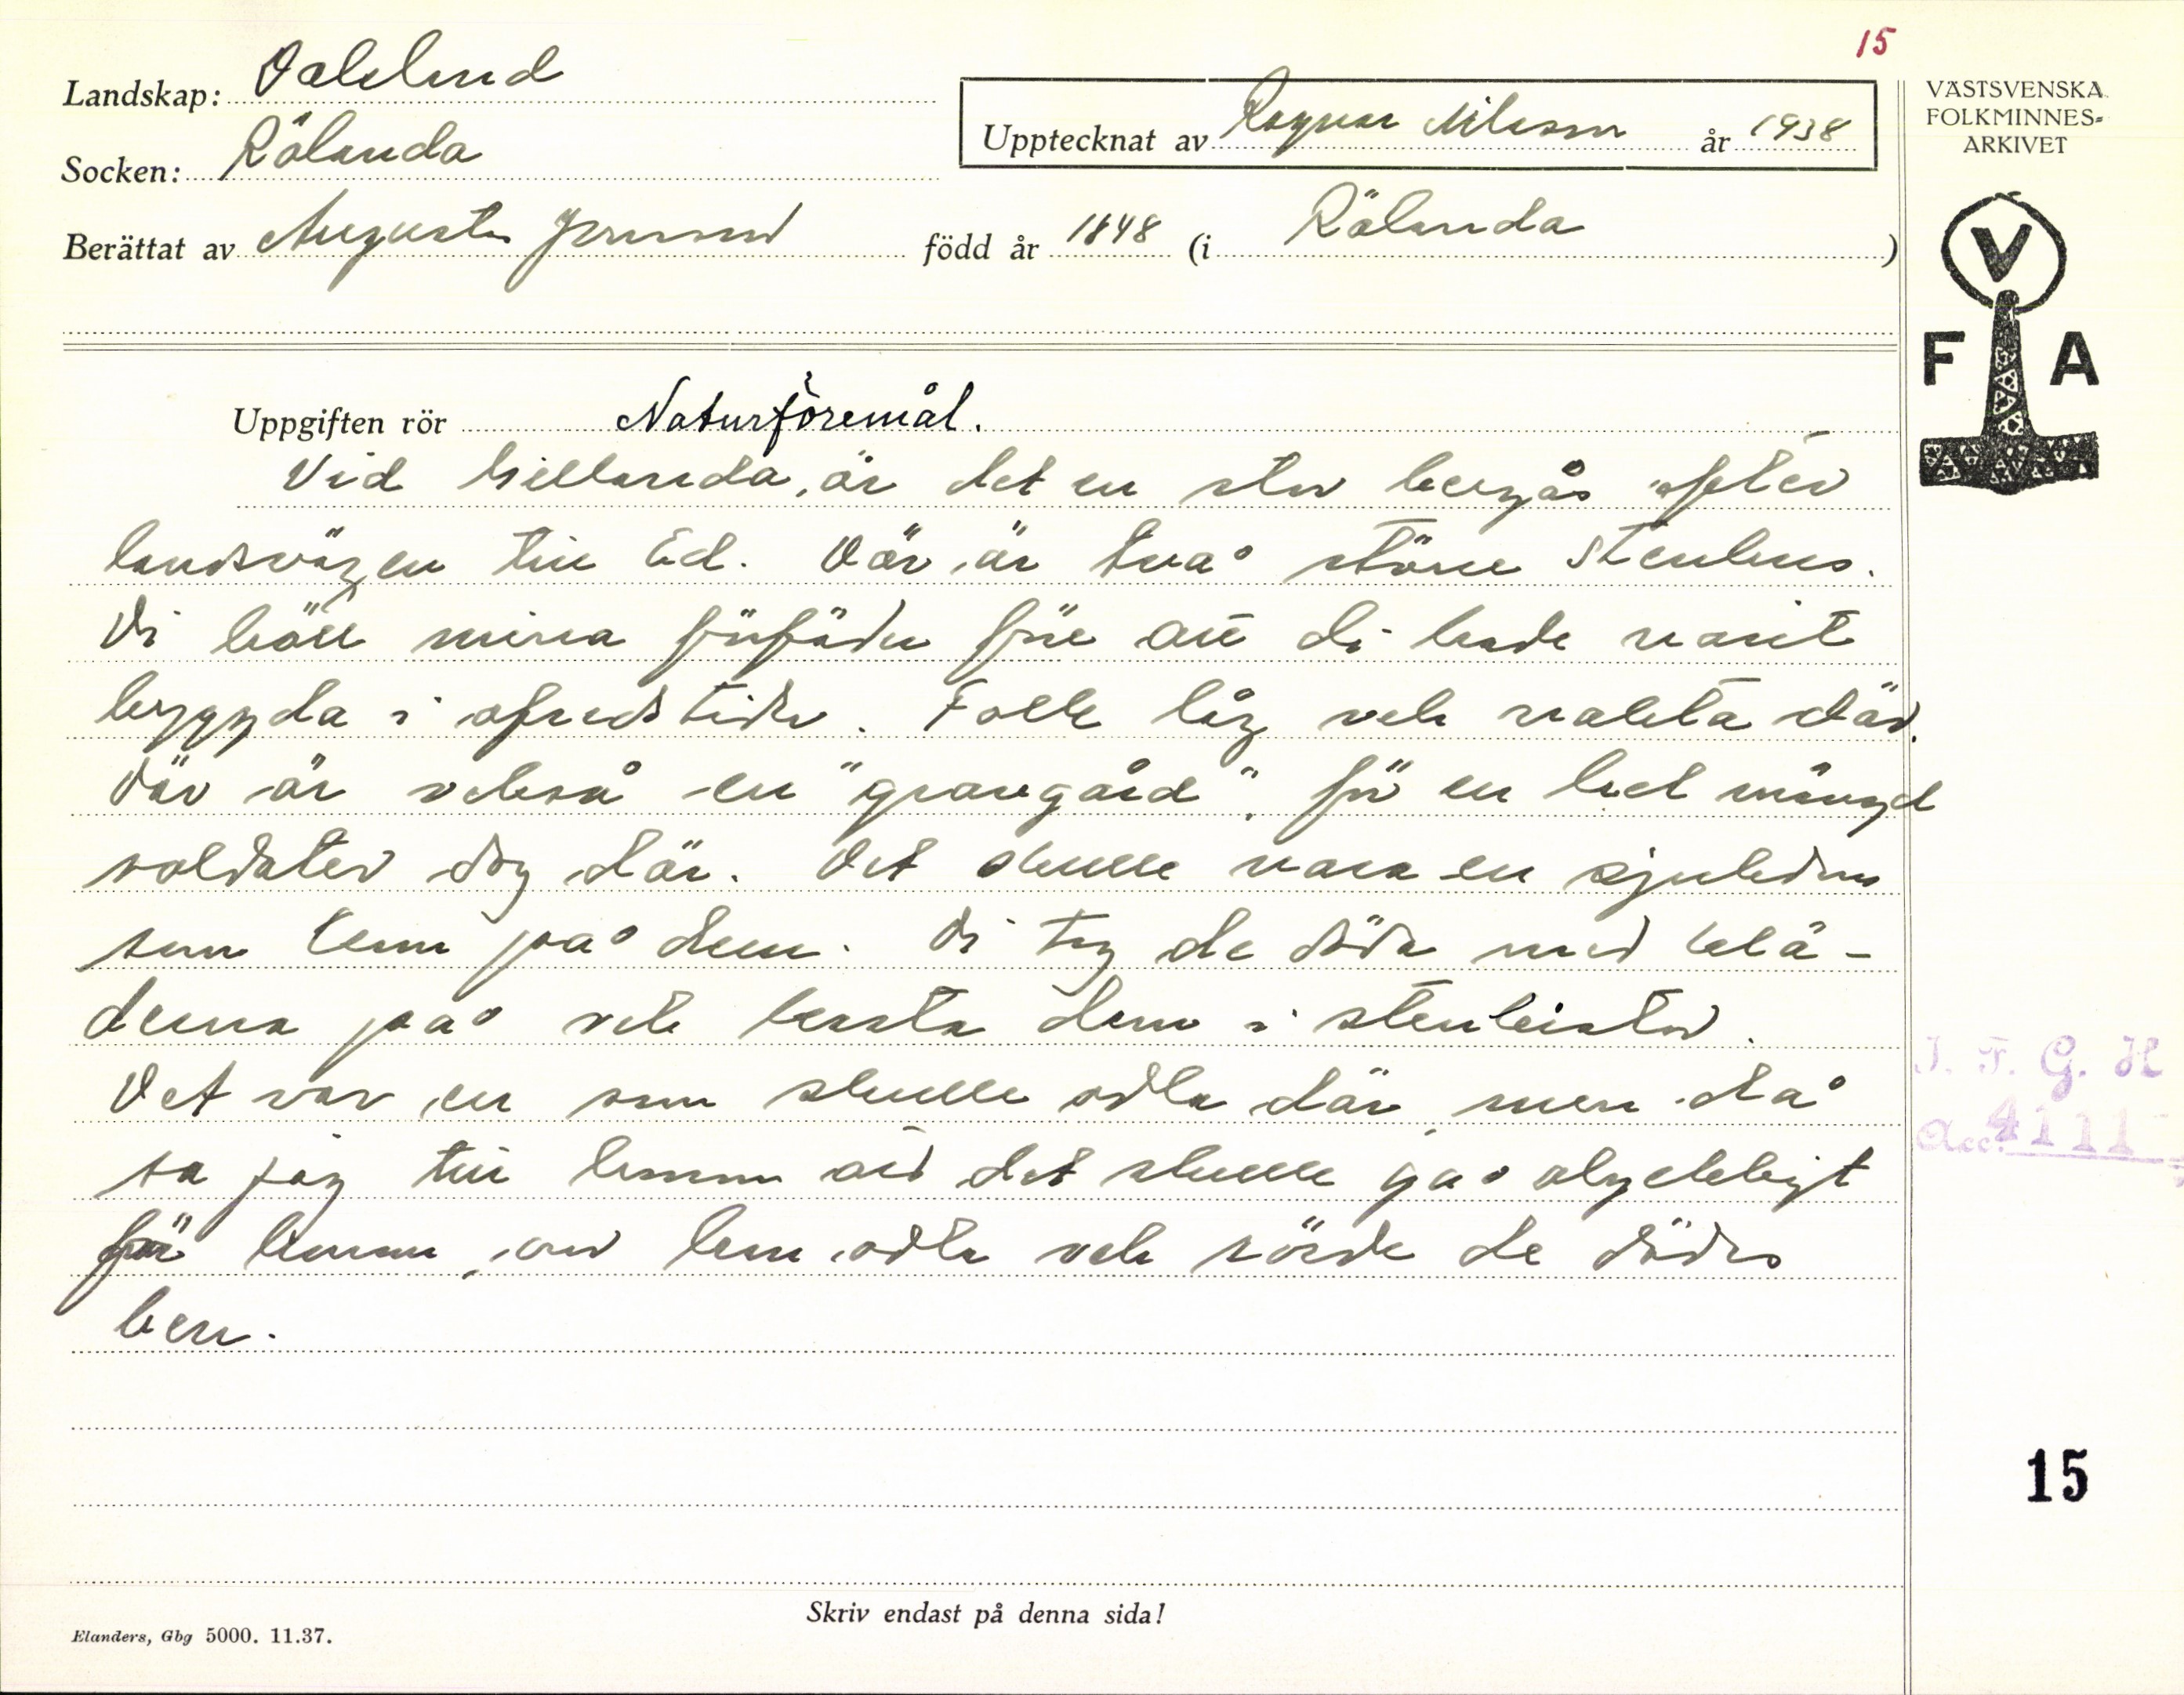 15
Landskap: Dalsland
Upptecknat av Ragnar Nilsson år 1938
VÄSTSVENSKA
FOLKMINNES-
ARKIVET
Socken: Rölanda
Berättat av Augusta Jonsson född år 1848 (i Rölanda)
V
F A
Uppgiften rör Naturföremål.
Vid Hillanda, är det en stor bergås efter
landsvägen till Ed. Där är två större stenhus.
Di höll mina förfäder före att di hade varit
byggda i ofredstider. Folk låg och vakta där.
Där är också en "gravgård", för en hel mängd
soldater dog där. Det skulle vara en sjukdom
som kom på dem. Di tog de döda med klä-
derna på och kasta dem i stenkistor.
Det var en som skulle odla där, men då
sa jag till honom att det skulle gå olyckligt
för honom, om han odla och rörde de dödas
ben.
I. F. G. H
Acc. 4111
15
Skriv endast på denna sida!
Elanders, Gbg 5000. 11.37.